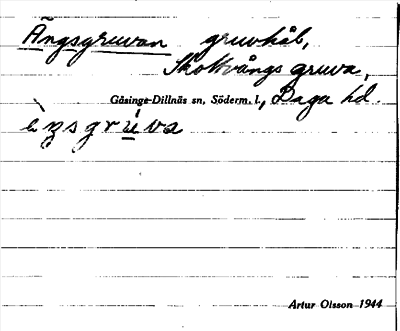 Ängsgruvan gruvhål,
Skottvångs gruva,
Gåsinge-Dillnäs sn, Söderm. l., Daga hd.
èŋsgrúva
Artur Olsson 1944